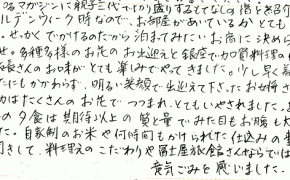 るマガジンに親子三代でカリ盛りするとてなしの宿を紹介
ルデンウィーク時なので、お部屋があいているかとても
。せっかくでかけるのだから泊まてみたいお宿に決めら
せ。多種多様のお花のお出迎えと銀座で加賀料理の
長さんのお味がとても楽しみでやってきました。少し早く
にもかかわらず、明るい笑顔で出迎えて下さったお女将さ
はたくさんのお花でつつまれ、とてもいやされました。
の夕食は期待以上の質と量でみた目もお腹も大
た。自家製のお米や何時間もかけられた仕込みの
聞きして、料理人のこだわりや冨士屋旅館さんならでは
意気ごみを感じました。